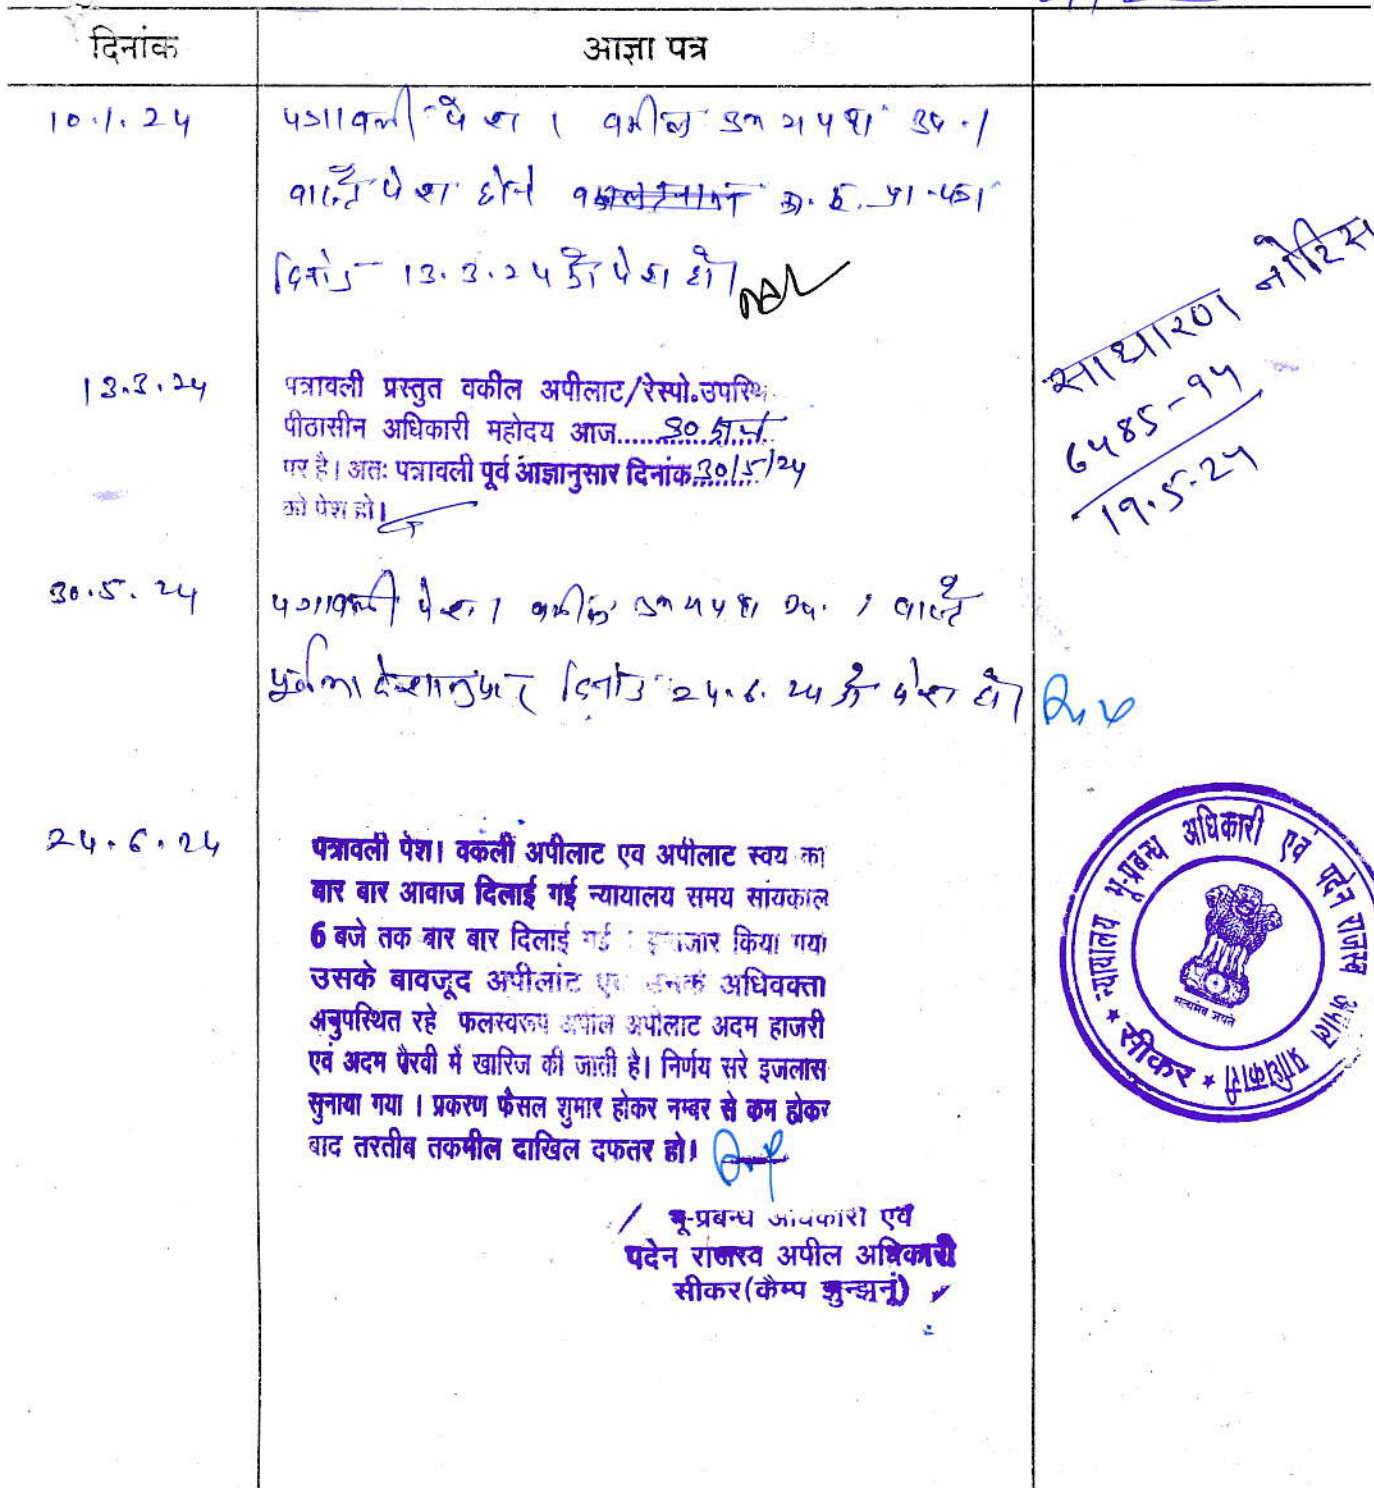 दिनांक
आज्ञा पत्र
10.1.24
पत्रावली पेश । वकील उभयपक्ष उप.।
वास्ते पेश होने
दिनांक 13.3.24 को पेश हो।
साधारण नोटिस
6485-94
19.5.24
13.3.24
पत्रावली प्रस्तुत वकील अपीलाट/रेस्पो.उपस्थि
पीठासीन अधिकारी महोदय आज......
पर है। अतः पत्रावली पूर्व आज्ञानुसार दिनांक 30/5/24
को पेश हो।
30.5.24
पत्रावली पेश। वकील उभयपक्ष उप. । वास्ते
पूर्व आदेशानुसार दिनांक 24.6.24 को पेश हो।
24.6.24
पत्रावली पेश। वकली अपीलाट एव अपीलाट स्वय का
बार बार आवाज दिलाई गई न्यायालय समय सांयकाल
6 बजे तक बार बार दिलाई गई । इन्तजार किया गया
उसके बावजूद अपीलांट एव उनके अधिवक्ता
अनुपस्थित रहे फलस्वरूप अपील अपीलाट अदम हाजरी
एवं अदम पैरवी में खारिज की जाती है। निर्णय सरे इजलास
सुनाया गया । प्रकरण फैसल शुमार होकर नम्बर से कम होकर
बाद तरतीब तकमील दाखिल दफतर हो।
भू-प्रबन्ध अधिकारी एवं
पदेन राजस्व अपील अधिकारी
सीकर(कैम्प झुन्झनूं)
न्यायालय भू-प्रबन्ध अधिकारी एवं पदेन राजस्व अपील प्राधिकारी
सत्यमेव जयते
★ सीकर ★